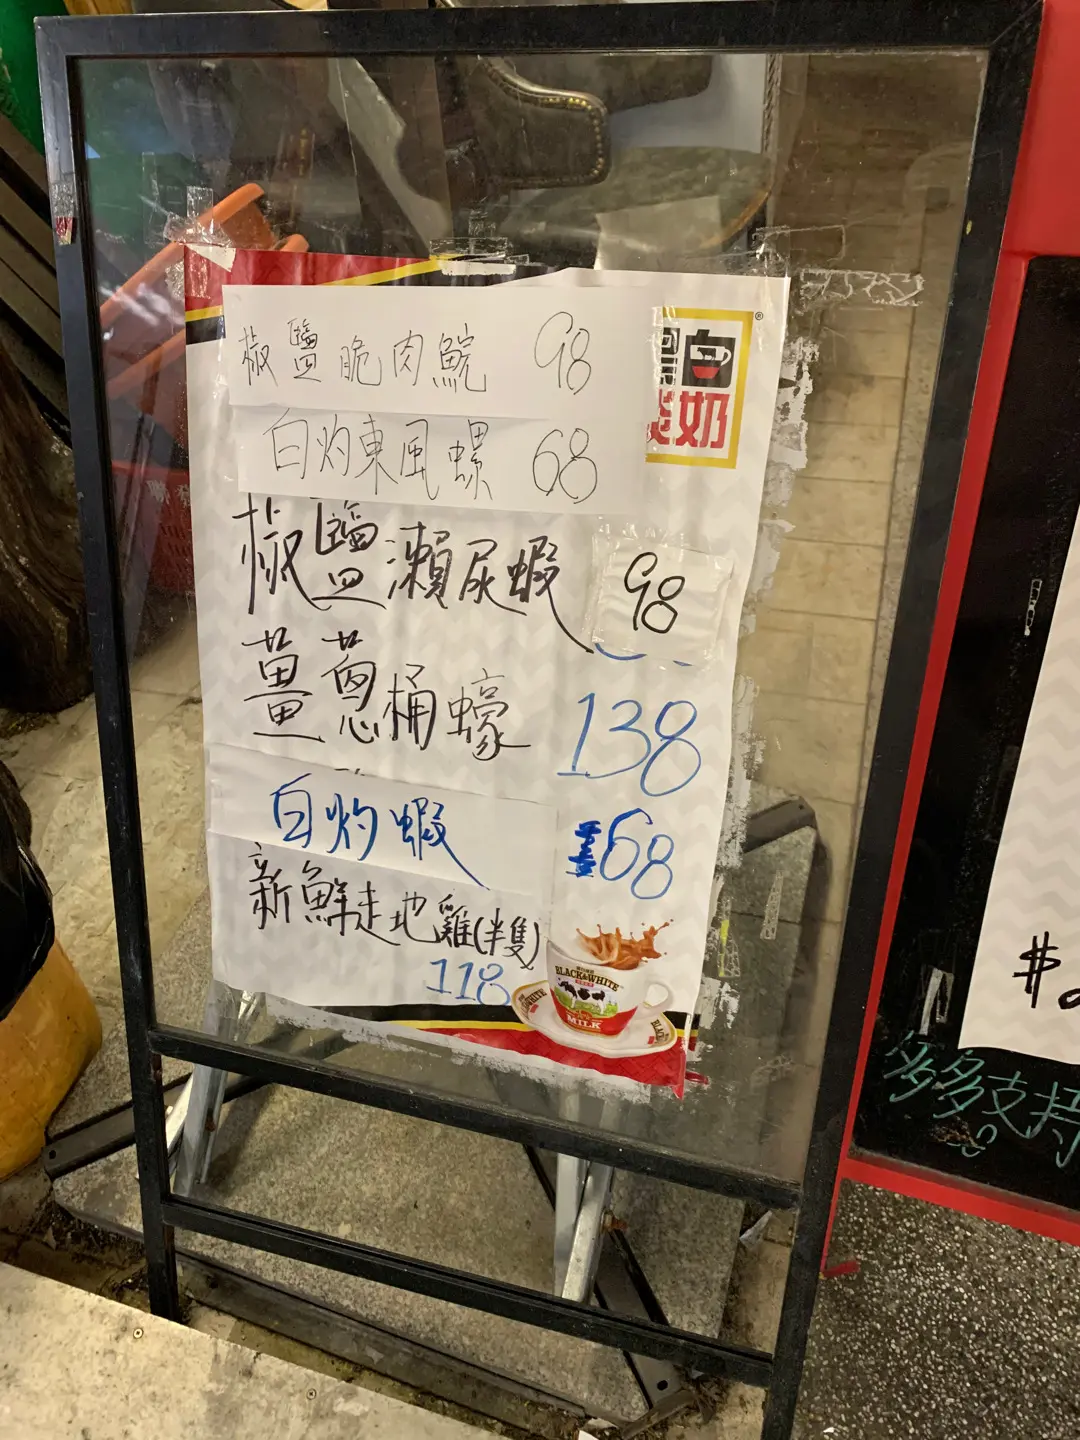 椒鹽脆肉鯇 98
黑白
淡奶
®
白灼東風螺 68
椒鹽瀨尿蝦 98
薑蔥桶蠔 138
白灼蝦 68
新鮮走地雞(半隻)
118
BLACK&WHITE
MILK
$
多多支持